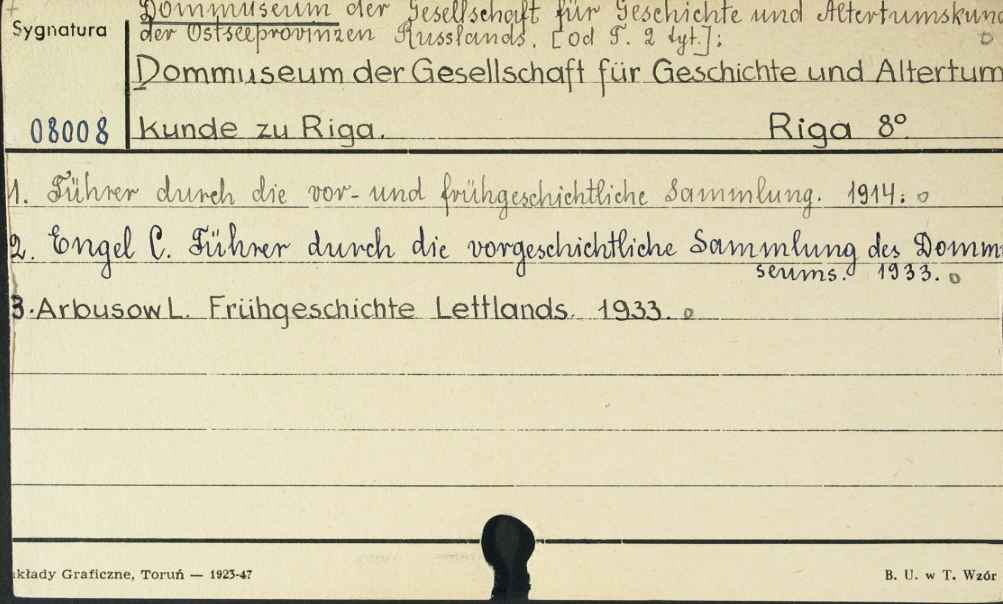 Dommuseum der Gesellschaft für Geschichte und Altertumskund
Sygnatura
der Ostseeprovinzen Russlands. [od T. 2 tyt.]:
Dommuseum der Gesellschaft für Geschichte und Altertum
08008 kunde zu Riga. Riga 8°.
1. Führer durch die vor- und frühgeschichtliche Sammlung. 1914:
2. Engel C. Führer durch die vorgeschichtliche Sammlung des Dommu
seums. 1933.
3. Arbusow L. Frühgeschichte Lettlands. 1933.
kłady Graficzne, Toruń — 1923-47
B. U. w T. Wzór